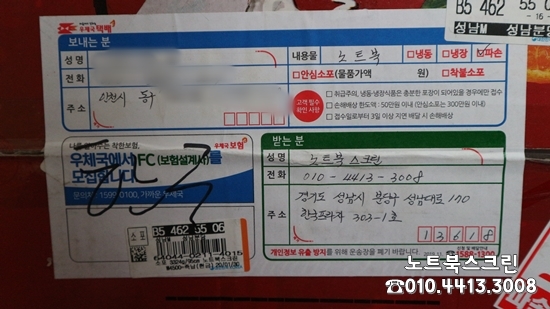 우체국 택배
B5 462 55 06
- 16 -
성남M 성남분당
보내는 분
성명
내용물 노트북 □냉동 □냉장 ☑파손
전화
□안심소포 (물품가액 원) □착불소포
주소 인천시 동구
고객 필수 확인 사항
• 취급주의, 냉동/냉장식품은 충분한 포장이 되어있을 경우에만 접수
• 손해배상 한도액 : 50만원 이내 (안심소포는 300만원 이내)
• 접수일로부터 3일 이상 지연 배달 시 손해배상
나를 키우는 착한보험, 우체국보험
우체국에서 FC(보험설계사)를
모집합니다.
문의처 1599-0100, 가까운 우체국
B5 462 55 06
받는 분
성명 노트북스크린
전화 010-4413-3008
주소 경기도 성남시 분당구 성남대로 170
한국프라자 303-1호
13618
개인정보 유출 방지를 위해 운송장을 폐기 바랍니다.
신청 및 배달안내
1588-1300
노트북스크린
☎010.4413.3008